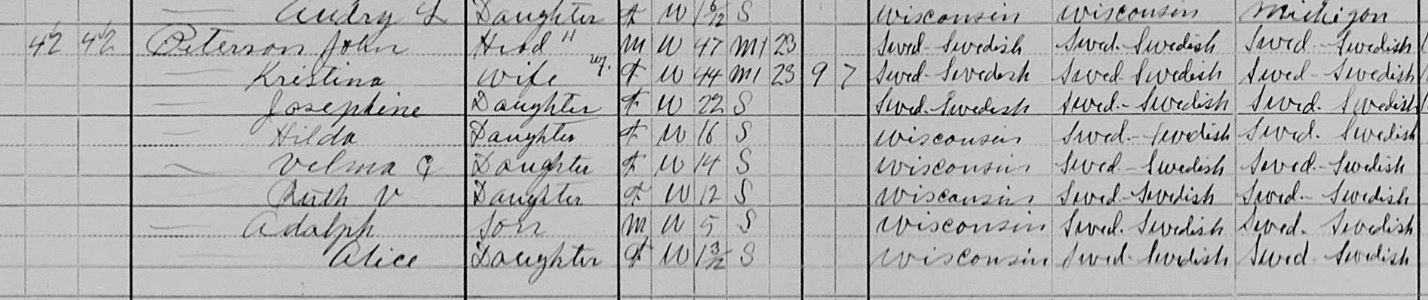 Audry L Daughter F W 1 6/12 S Wisconsin Wisconsin Michigan
42 42 Peterson John Head M W 47 M1 23 Swed-Swedish Swed-Swedish Swed-Swedish
— Kristina Wife F W 44 M1 23 9 7 Swed-Swedish Swed-Swedish Swed-Swedish
— Josephine Daughter F W 22 S Swed-Swedish Swed-Swedish Swed-Swedish
— Hilda Daughter F W 16 S Wisconsin Swed-Swedish Swed-Swedish
— Velma C Daughter F W 14 S Wisconsin Swed-Swedish Swed-Swedish
— Ruth V Daughter F W 12 S Wisconsin Swed-Swedish Swed-Swedish
— Adalph Son M W 5 S Wisconsin Swed-Swedish Swed-Swedish
— Alice Daughter F W 1 3/12 S Wisconsin Swed-Swedish Swed-Swedish